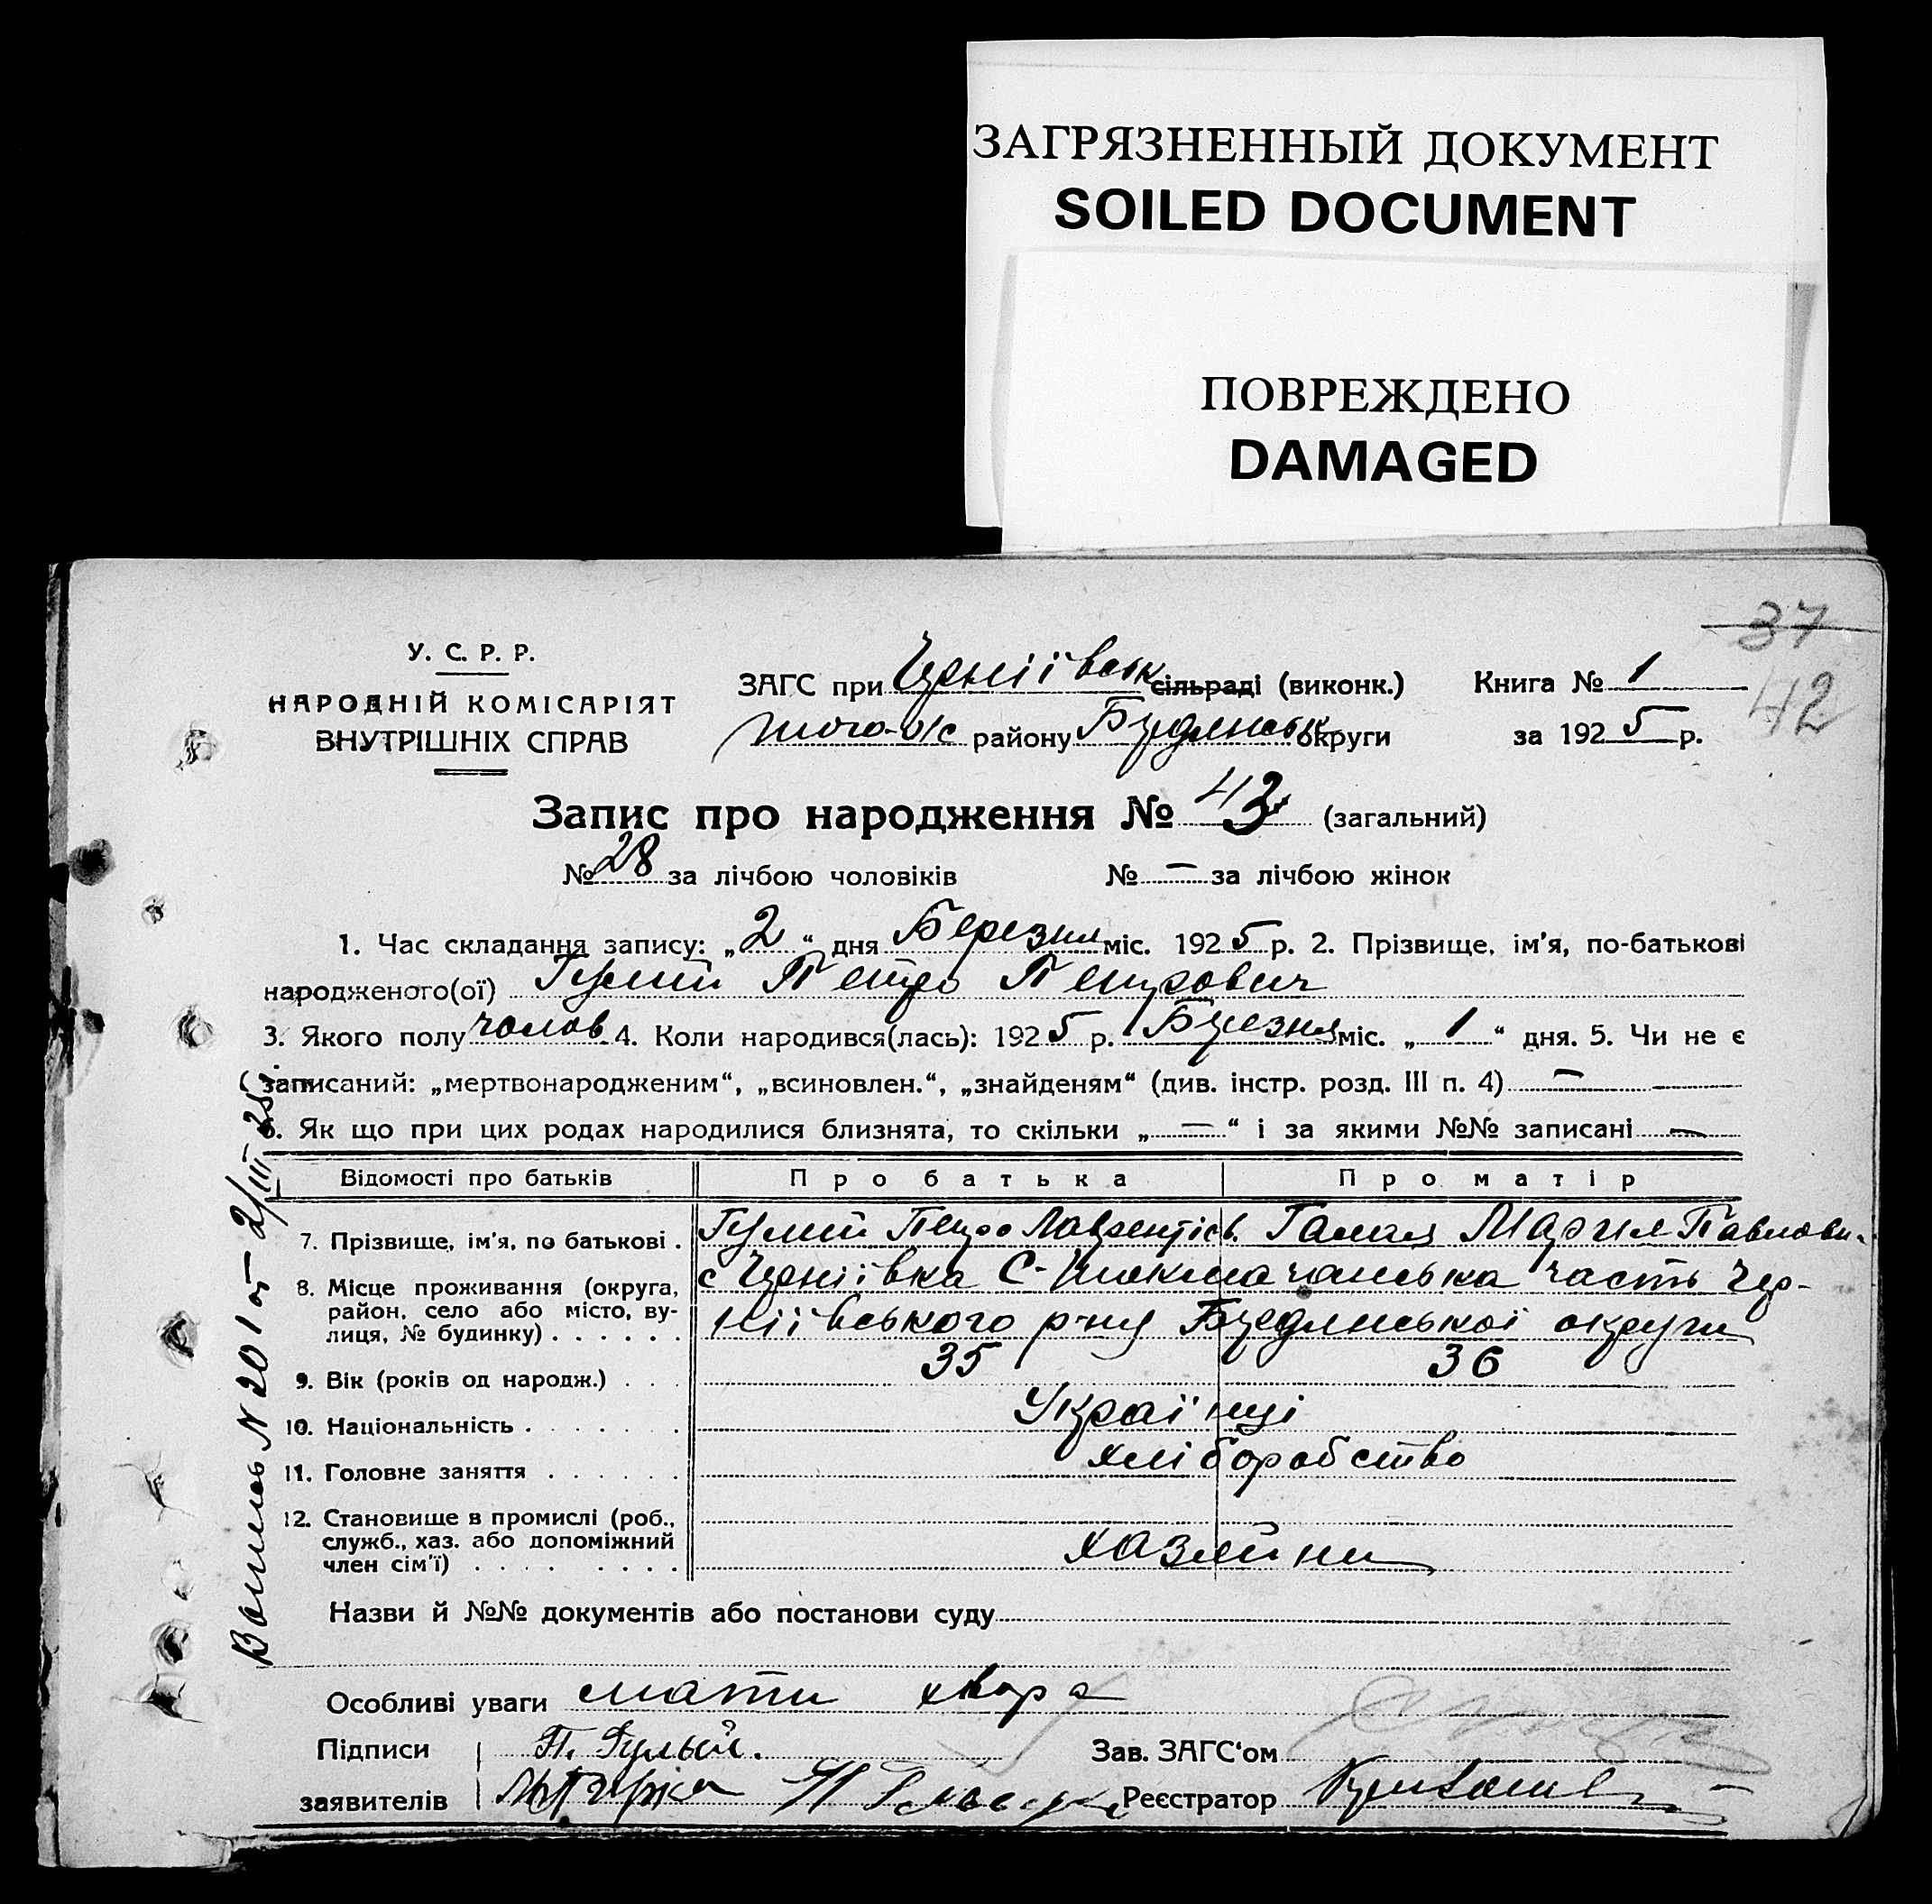 ЗАГРЯЗНЕННЫЙ ДОКУМЕНТ
SOILED DOCUMENT
ПОВРЕЖДЕНО
DAMAGED
37
42
У. С. Р. Р.
НАРОДНІЙ КОМІСАРІЯТ
ВНУТРІШНІХ СПРАВ
ЗАГС при Черніївськ сільраді (виконк.)
того-ж району Бердянськ округи
Книга № 1
за 1925 р.
Запис про народження № 43 (загальний)
№ 28 за лічбою чоловіків № — за лічбою жінок
1. Час складання запису: „2“ дня Березня міс. 1925 р. 2. Прізвище, ім'я, по-батькові
народженого(ої) Гулий Петро Петрович
3. Якого полу чолов. 4. Коли народився(лась): 1925 р. Березня міс. „1“ дня. 5. Чи не є
записаний: „мертвонародженим“, „всиновлен.“, „знайденям“ (див. інстр. розд. III п. 4) —
6. Як що при цих родах народилися близнята, то скільки „—“ і за якими №№ записані —
Відомості про батьків Про батька Про матір
7. Прізвище, ім'я, по батькові . Гулий Петро Лаврентіев. Гала Мария Павлови
8. Місце проживання (округа, район, село або місто, вулиця, № будинку) с Черніївка С-Токмачанська часть Чер-
ніївського р-ну Бердянської округи
9. Вік (років од народж.) 35 36
10. Національність Українці
11. Головне заняття хліборобство
12. Становище в промислі (роб., служб., хаз. або допоміжний член сім'ї) хазяйни
Назви й №№ документів або постанови суду
Особливі уваги мати хвора
Підписи П. Гулый. Зав. ЗАГС'ом
заявителів Реєстратор
Выпись N 201 от 2/III-25